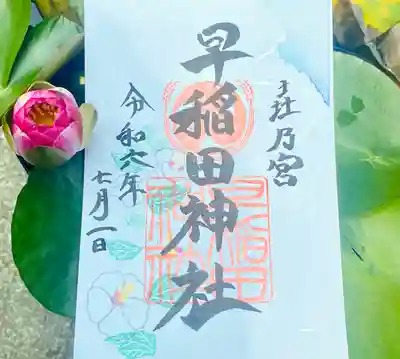 乃宮
早稲田神社
令和六年
七月一日